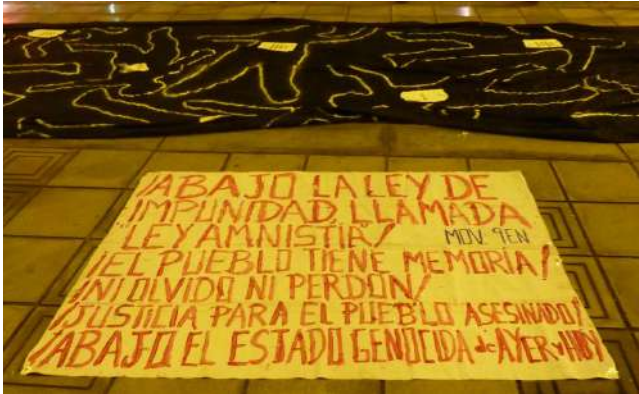 ¡ABAJO LA LEY DE
IMPUNIDAD LLAMADA
"LEY AMNISTÍA"!
MOV. 9EN
¡EL PUEBLO TIENE MEMORIA!
¡NI OLVIDO NI PERDÓN!
¡JUSTICIA PARA EL PUEBLO ASESINADO!
¡ABAJO EL ESTADO GENOCIDA de AYER y HOY